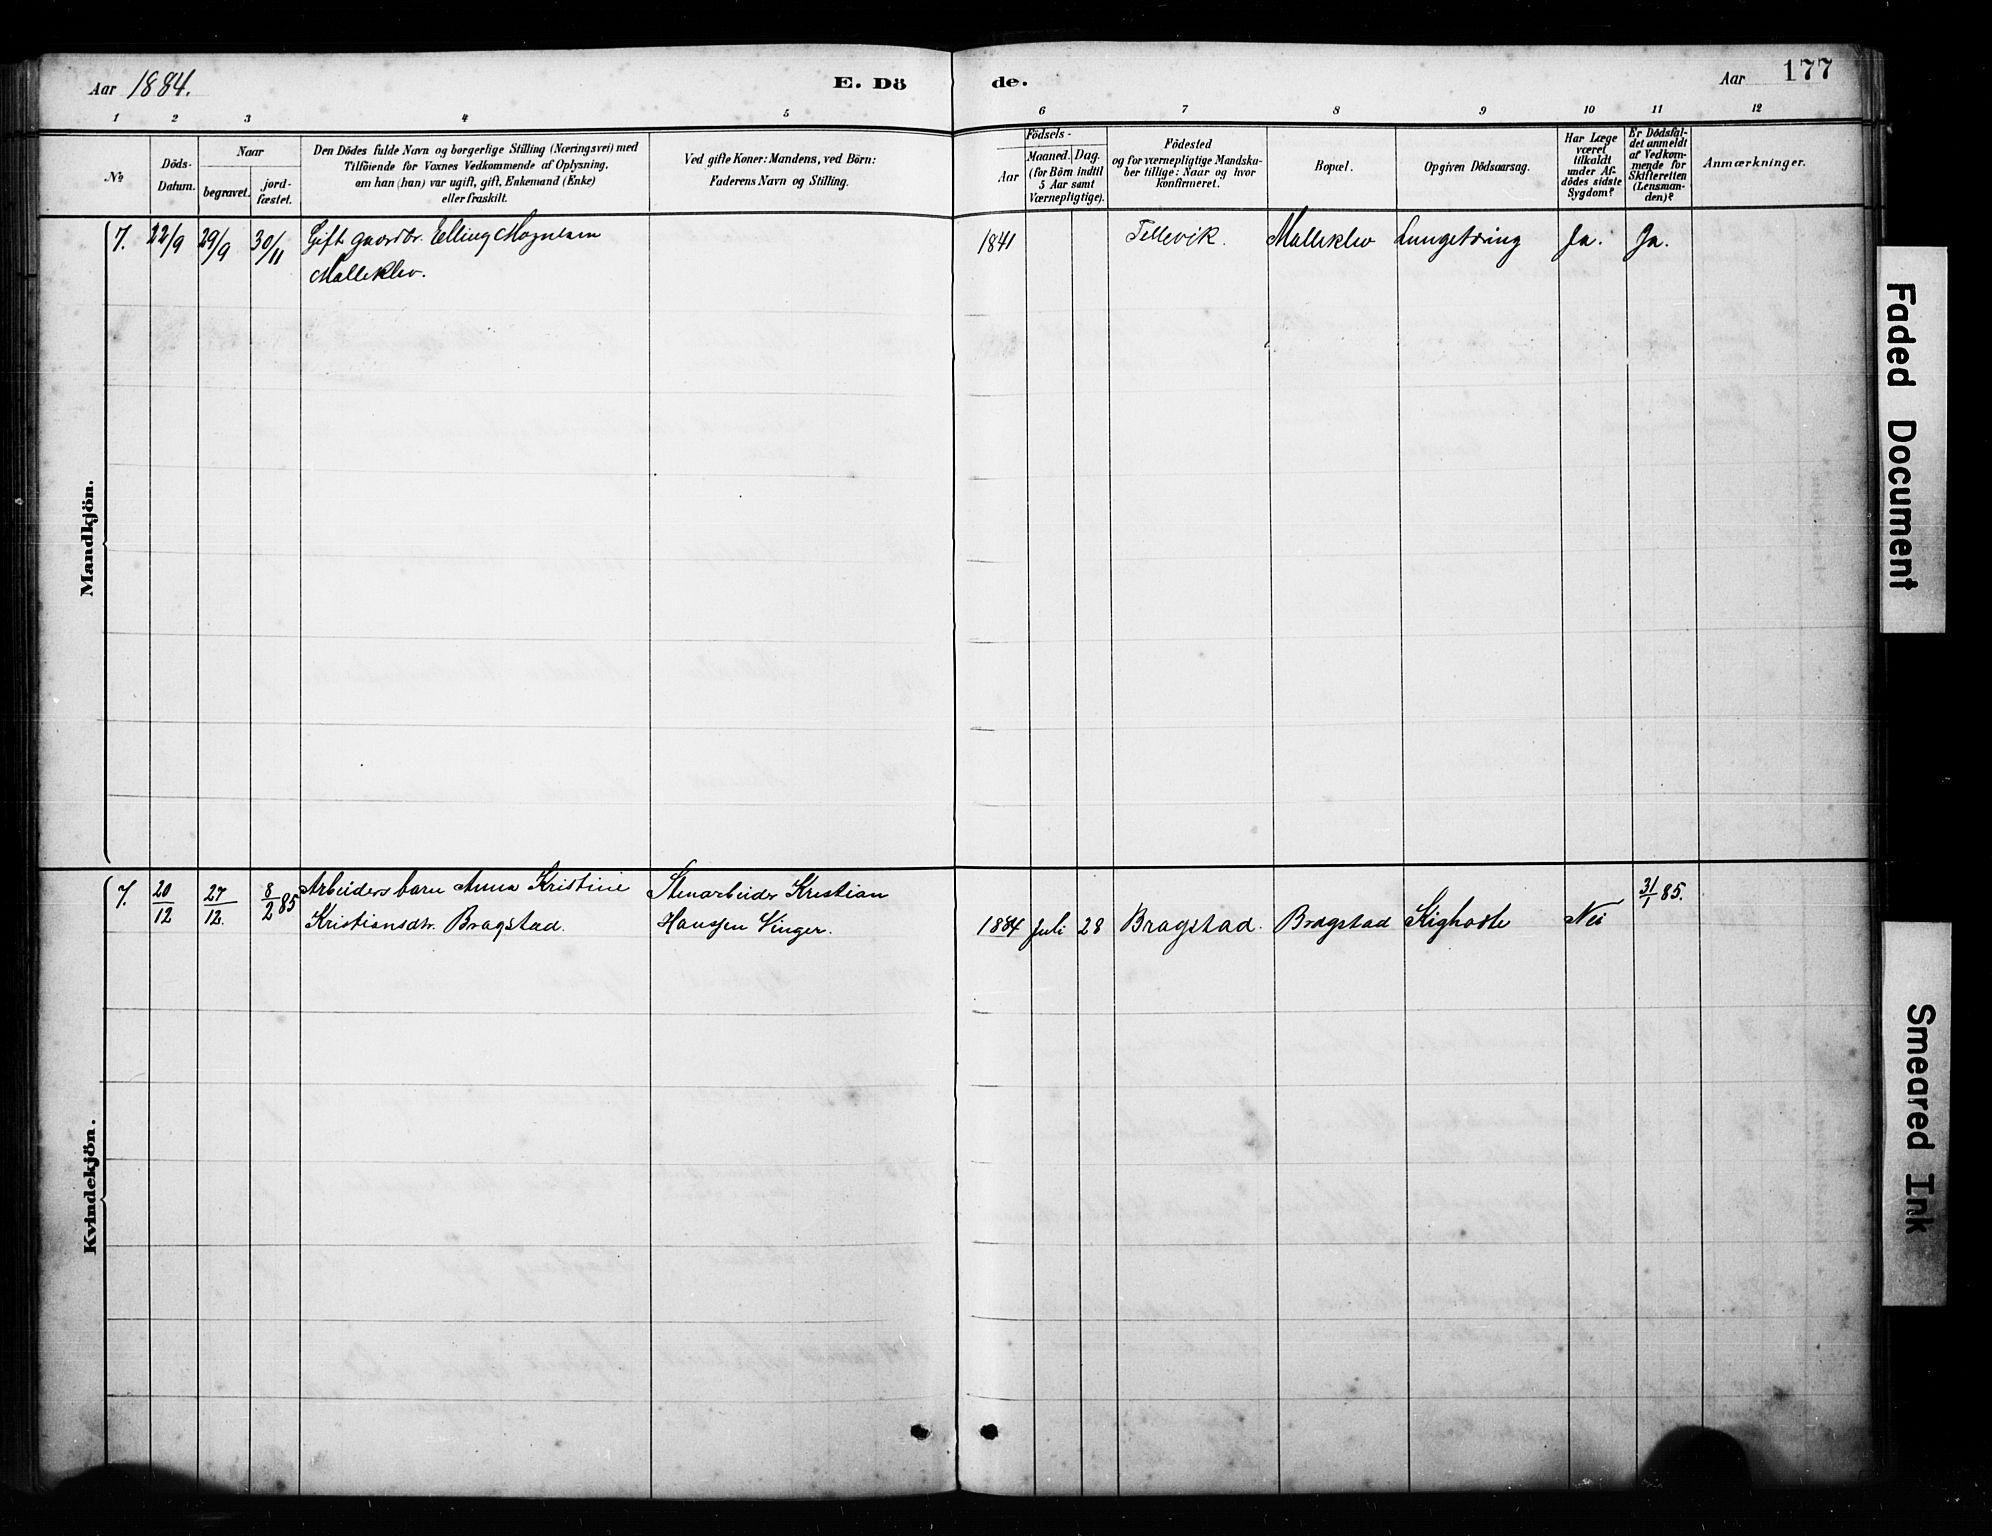 Aar 1884.
E. Dö
de.
Aar 177
1 2 3 4 5 6 7 8 9 10 11 12
№
Döds-
Datum.
Naar
begravet.
jord-
fæstet.
Den Dödes fulde Navn og borgerlige Stilling (Næringsvei) med
Tilföiende for Voxnes Vedkommende af Oplysning,
om han (hun) var ugift, gift, Enkemand (Enke)
eller fraskilt.
Ved gifte Koner: Mandens, ved Börn:
Faderens Navn og Stilling.
Födsels-
Aar
Maaned. Dag.
(for Börn indtil
5 Aar samt
Værnepligtige).
Födested
og for værnepligtige Mandska-
ber tillige: Naar og hvor
konfirmeret.
Bopæl.
Opgiven Dödsaarsag.
Har Læge
været
tilkaldt
under Af-
dödes sidste
Sygdom?
Er Dödsfal-
det anmeldt
af Vedkom-
mende for
Skifteretten
(Lensman-
den)?
Anmærkninger.
Mandkjön.
7. 22/9 29/9 30/11 Gift gaardbr. Elling Mognesen
Malleklev.
1841 Tellevik. Malleklev Lungetæring Ja. Ja.
Kvindekjön.
7. 20/12 27/12. 8/2 85 Arbeiders barn Anna Kristine
Kristiansdtr. Bragstad.
Stenarbeider Kristian
Hansen Vinger.
1884 Juli 28 Bragstad. Bragstad Kighoste Nei 31/1 85.
Faded Document
Smeared Ink